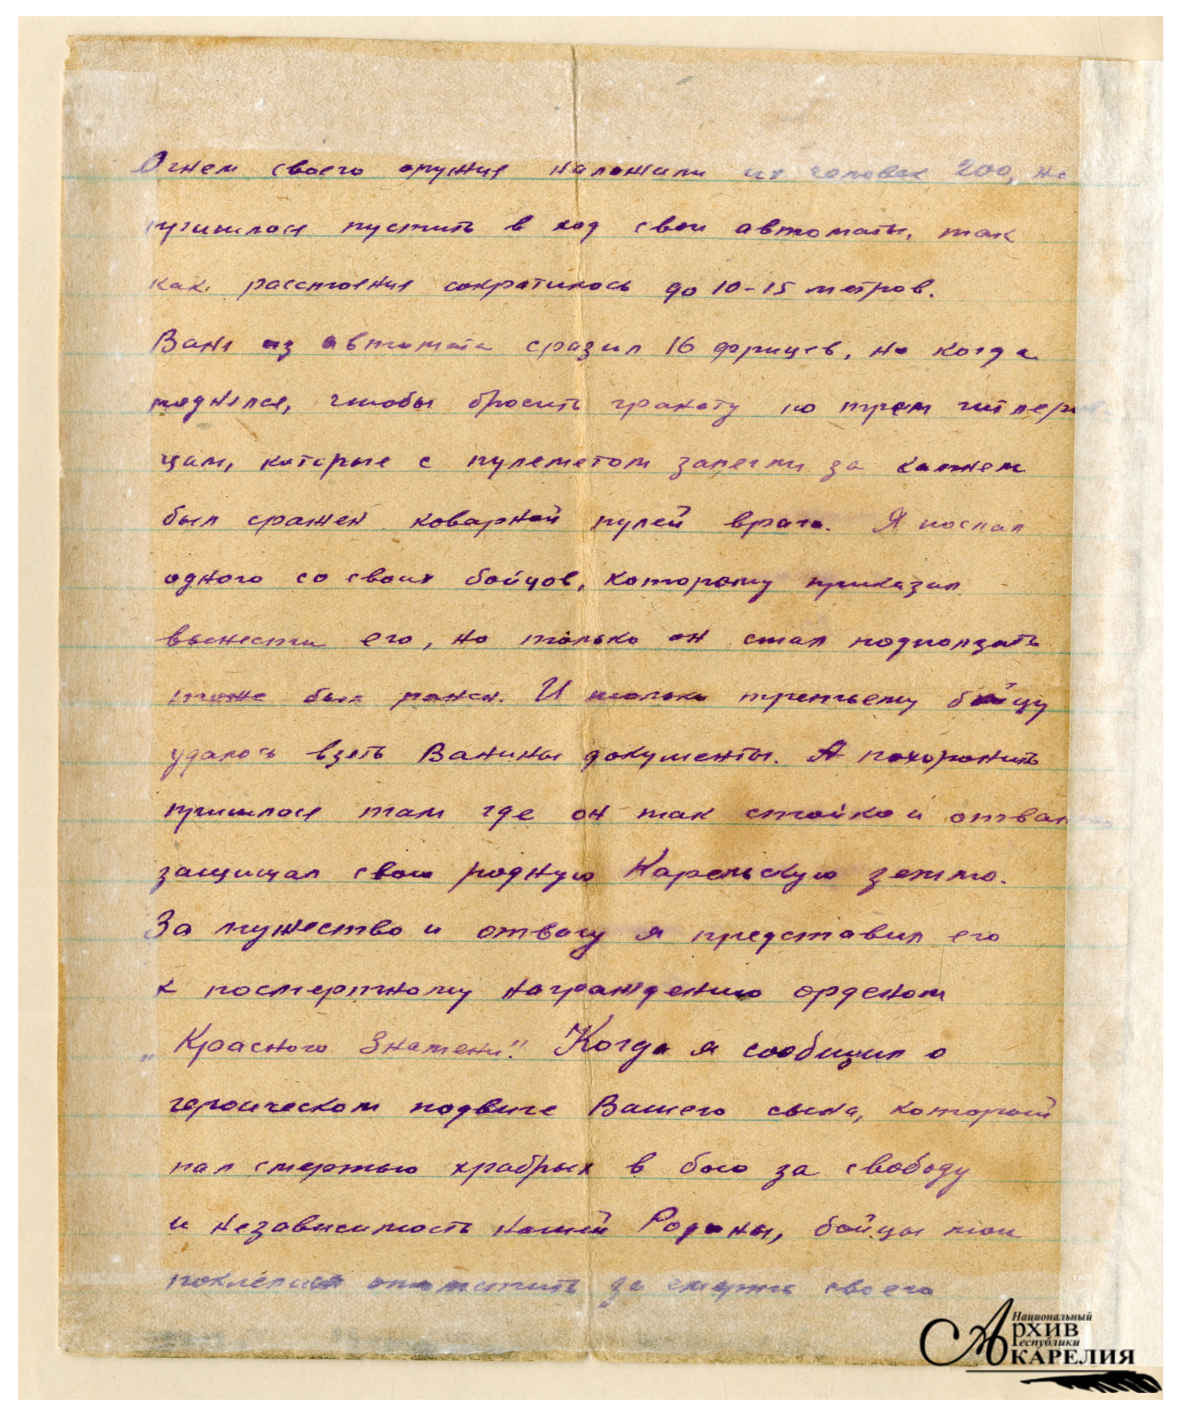 Огнем своего оружия наложили их человек 200, но
пришлося пустить в ход свои автоматы, так
как расстояние сократилось до 10-15 метров.
Ваня из автомата сразил 16 фрицев, но когда
поднялся, чтобы бросить гранату по трем гитлеров
цам, которые с пулеметом залегли за камнем
был сражен коварной пулей врага. Я послал
одного со своих бойцов, которому приказал
вынести его, но только он стал подползать
тоже был ранен. И только третьему бойцу
удалось взять Ванины документы. А похоронить
пришлося там где он так стойко и отважно
защищал свою родную Карельскую землю.
За мужество и отвагу я представил его
к посмертному награждению орденом
„Красного Знамени". Когда я сообщил о
героическом подвиге Вашего сына, который
пал смертью храбрых в бою за свободу
и независимость нашей Родины, бойцы мои
поклялися отомстить за смерть своего
Национальный
Архив
Республики
Карелия